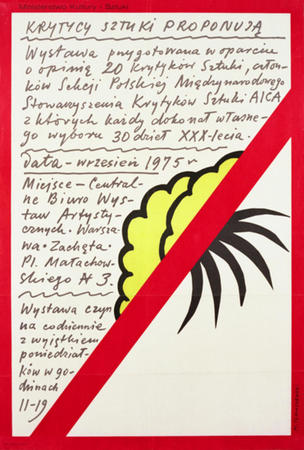 Ministerstwo Kultury i Sztuki
KRYTYCY SZTUKI PROPONUJĄ
Wystawa przygotowana w oparciu
o opinię 20 Krytyków Sztuki, człon-
ków Sekcji Polskiej Międzynarodowego
Stowarzyszenia Krytyków Sztuki AICA
z których każdy dokonał własne-
go wyboru 30 dzieł XXX-lecia.
Data – wrzesień 1975 r
Miejsce – Central-
ne Biuro Wys-
taw Artysty-
cznych. Warsza-
wa • Zachęta.
Pl. Małachow-
skiego № 3.
Wystawa czyn
na codziennie
z wyjątkiem
poniedział-
ków w go-
dzinach
11-19